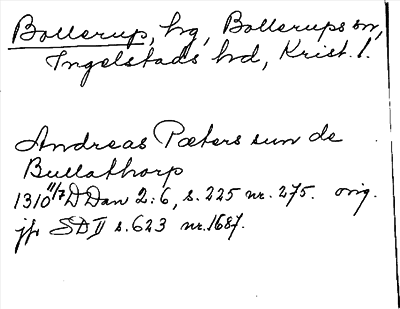 Bollerup, hg, Bollerups sn,
Ingelstads hd, Krist. l.
Andreas Pæters sun de
Bullathorp
1310 11/7 D Dan 2:6, s. 225 nr. 275. orig.
jfr SD II s. 623 nr. 1687.